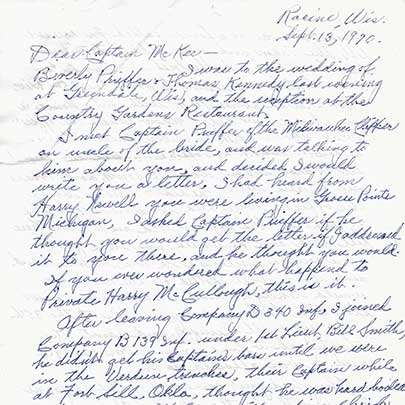 Racine, Wis.
Sept. 13, 1970.
Dear Captain McKee —
I was to the wedding of
Beverly Pfeiffer & Thomas Kennedy last evening
at Greendale, Wis, and the reception at the
Country Gardens Restaurant.
I met Captain Pueffer of the Milwaukee Clipper
an uncle of the bride, and was talking to
him about you, and decided I would
write you a letter, I had heard from
Harry Powell you were living in Grosse Pointe
Michigan, I asked Captain Pueffer if he
thought you would get the letter if addressed
it to you there, and he thought you would.
If you ever wondered what happend to
Private Harry McCullough, this is it.
After leaving Company D 340 Inf. I joined
Company B 139 Inf. under 1st Lieut. Bill Smith,
he didnt get his Captains bars until we were
in the Verdun trenches, their Captain while
at Fort Sill Okla, thought he was hard boiled